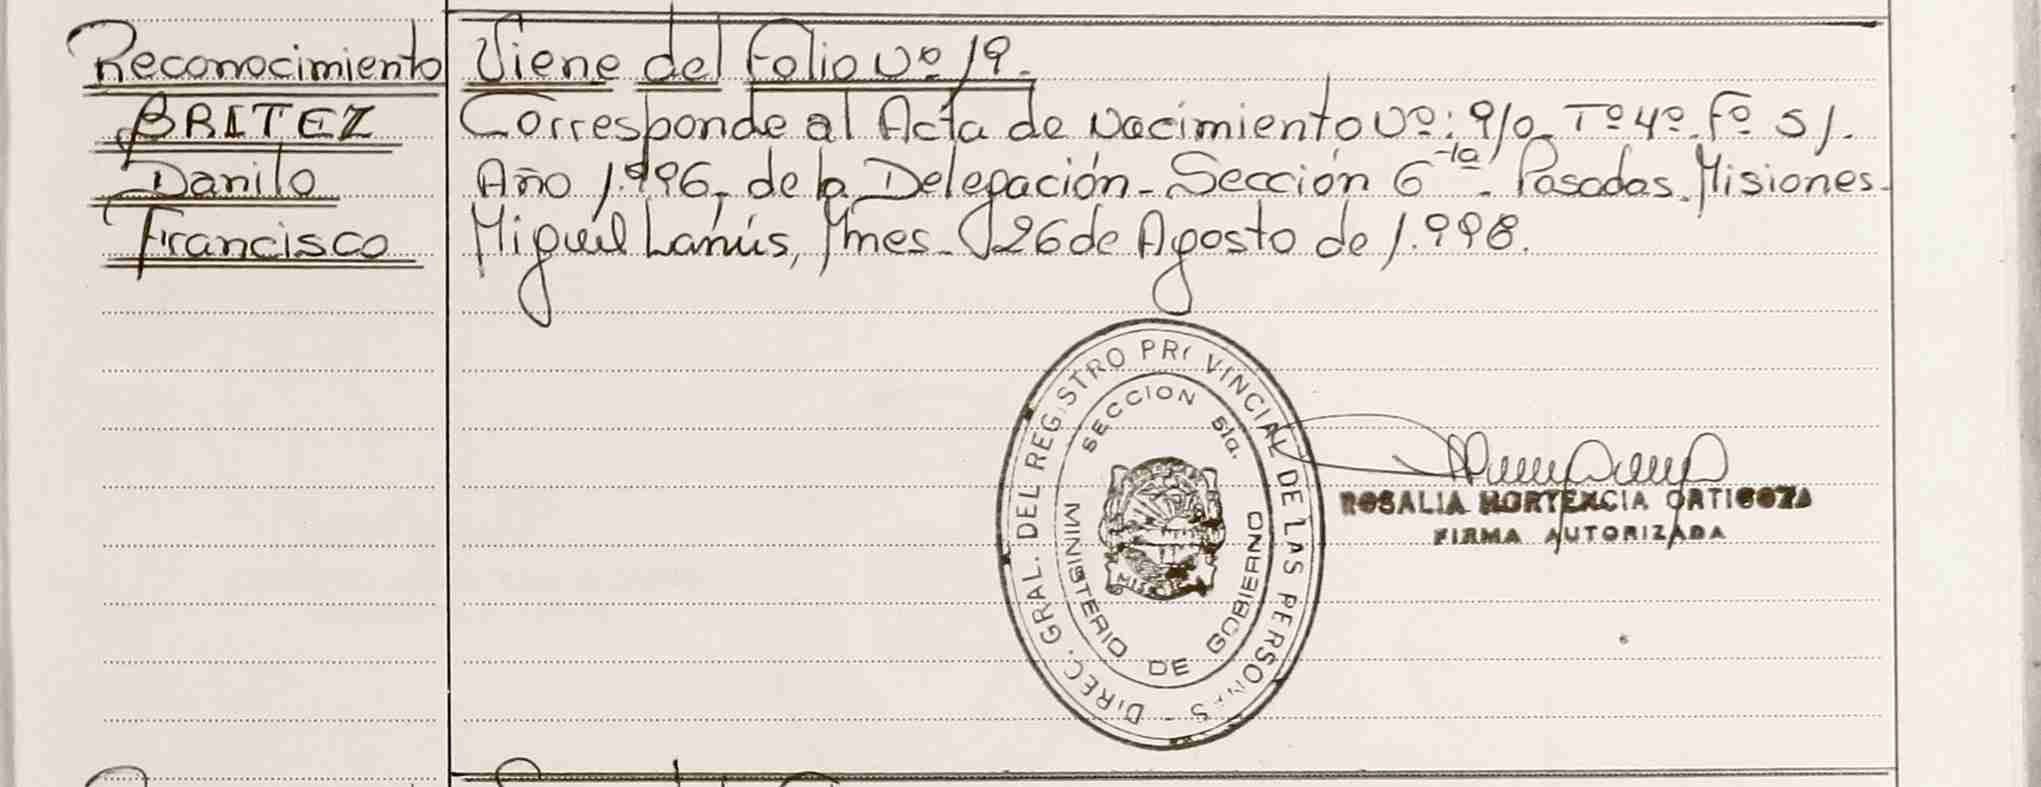 Reconocimiento
BRITEZ
Danilo
Francisco
Viene del Folio Nº 19.
Corresponde al Acta de Nacimiento Nº: 910 Tº 4º. Fº 51.
Año 1.996, de la Delegación - Sección 6-ta. Posadas. Misiones.
Miguel Lanús, Mnes. 26 de Agosto de 1.998.
DIREC. GRAL. DEL REGISTRO PROVINCIAL DE LAS PERSONAS
SECCION 5ta.
MINISTERIO DE GOBIERNO
ROSALIA HORTENCIA ORTIGOZA
FIRMA AUTORIZADA